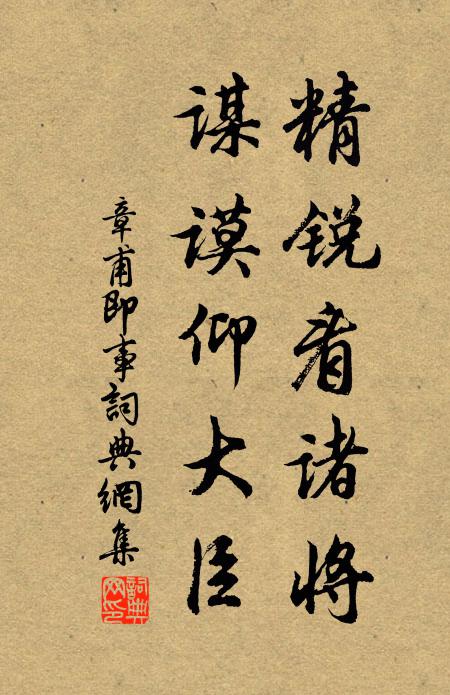 精锐看诸将
谋谟仰大臣
章甫即事詞典網集
詞典网印